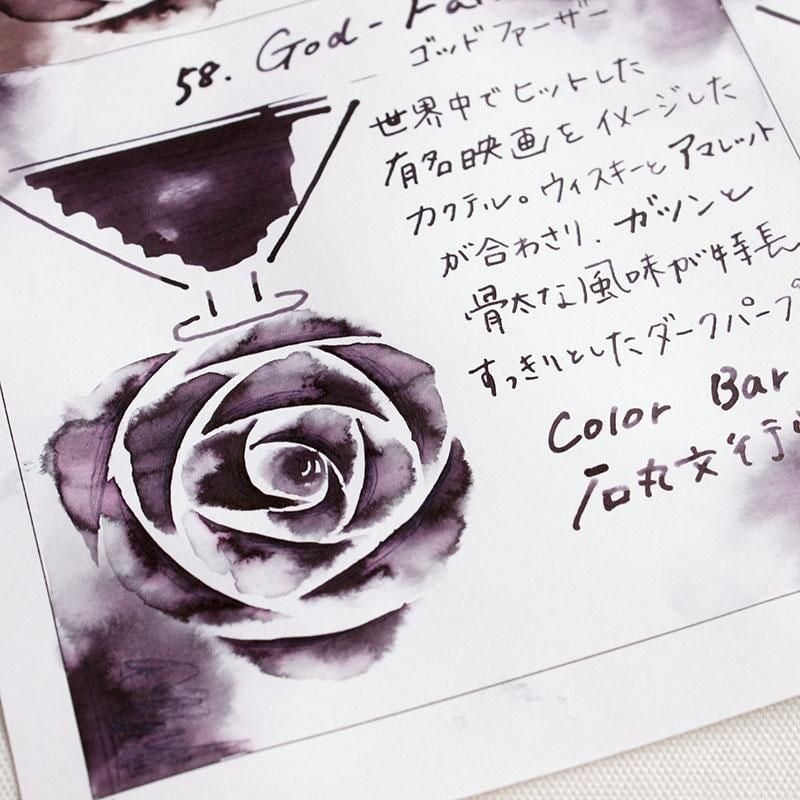 58. God-Fa
ゴッドファーザー
世界中でヒットした
有名映画をイメージした
カクテル。ウィスキーとアマレット
が合わさり、ガツンと
骨太な風味が特長
すっきりとしたダークパープ
Color Bar
石丸文行